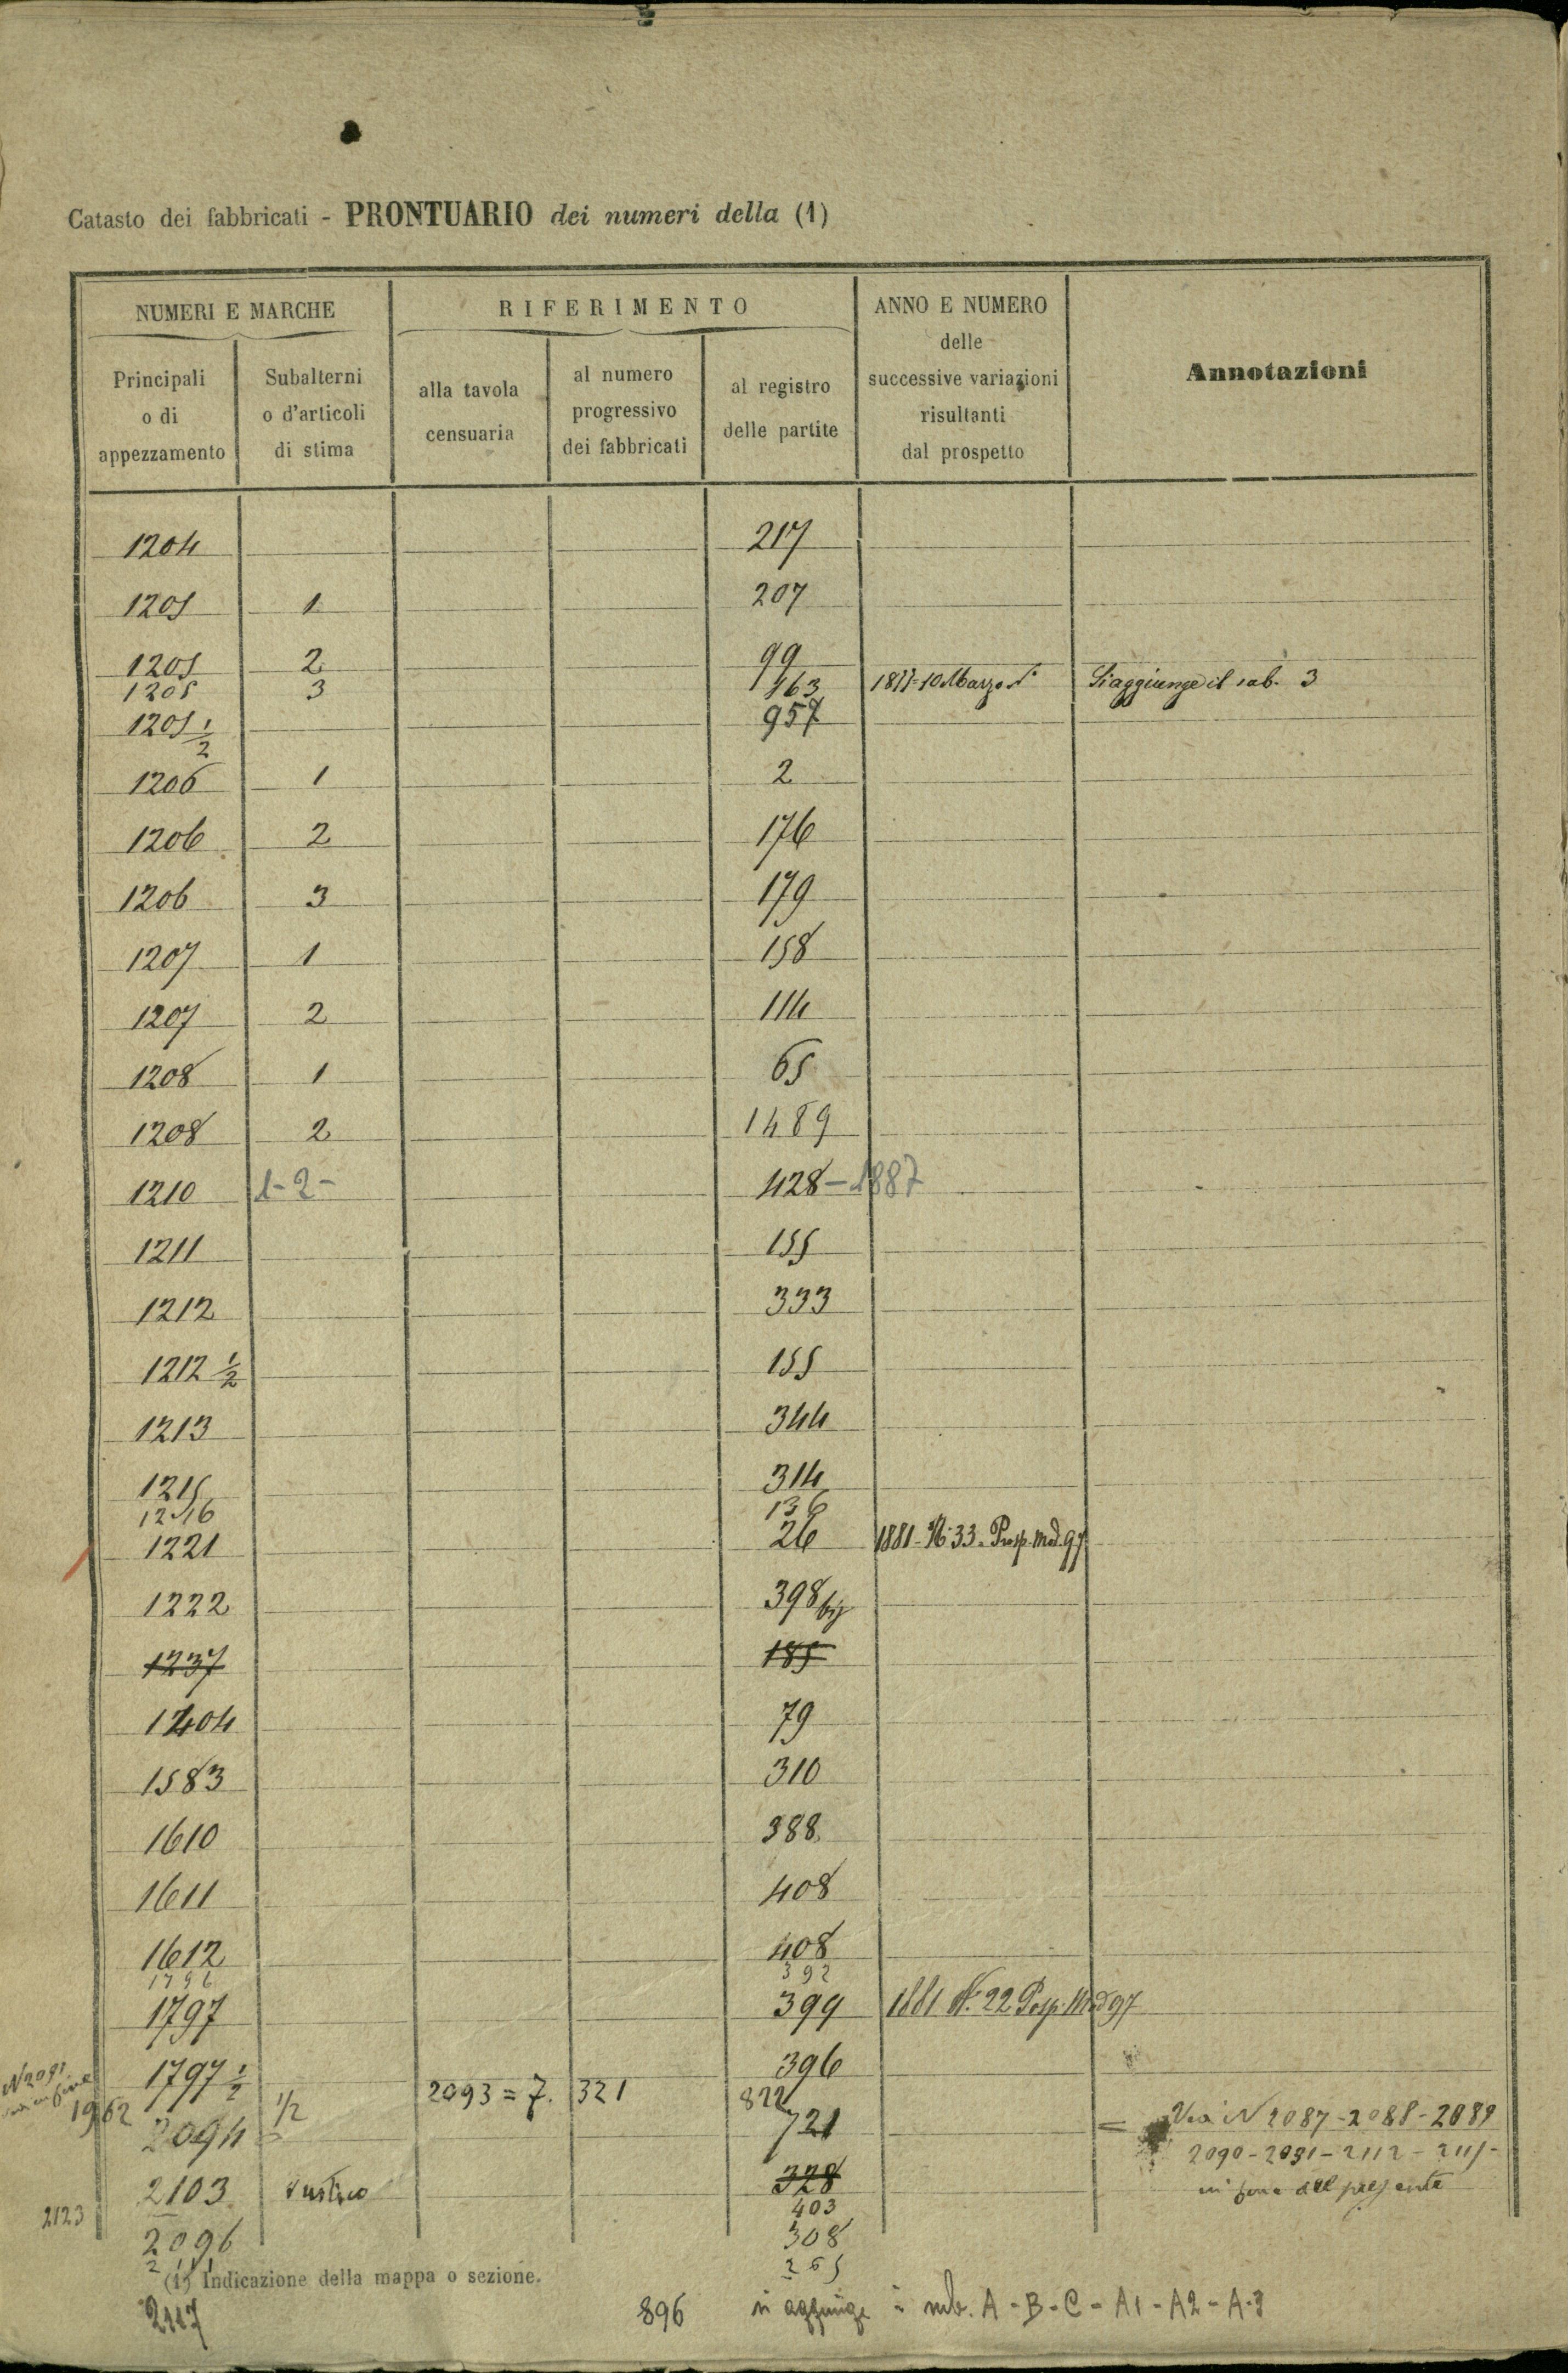 Catasto dei fabbricati - PRONTUARIO dei numeri della (1)
NUMERI E MARCHE
RIFERIMENTO
ANNO E NUMERO
delle
successive variazioni
risultanti
dal prospetto
Annotazioni
Principali
o di
appezzamento
Subalterni
o d'articoli
di stima
alla tavola
censuaria
al numero
progressivo
dei fabbricati
al registro
delle partite
1204 217
1205 1 207
1205 2 99
1205 3 463 1877=10 Marzo Si aggiunge il sub. 3
1205 1/2 957
1206 1 2
1206 2 176
1206 3 179
1207 1 158
1207 2 114
1208 1 65
1208 2 1489
1210 1-2- 428-1887
1211 155
1212 333
1212 1/2 155
1213 344
1215 314
1216 136
1221 26 1881-N°33-Prosp. Mod. 97
1222 398 bis
1237 185
1404 79
1583 310
1610 388
1611 408
1612 408
1796 392
1797 399 1881 N° 22 Prosp. Mod 97
1797 1/2 396
N 2091
1962 1/2 2093=7. 321 822
2094 721 = N 2087-2088-2089
2090-2091-2112-2115-
2103 rustico 328 in fine del presente
2123 403
2096 308
2111 265
(1) Indicazione della mappa o sezione.
2117 896 si aggiunge i sub. A-B-C-A1-A2-A-3